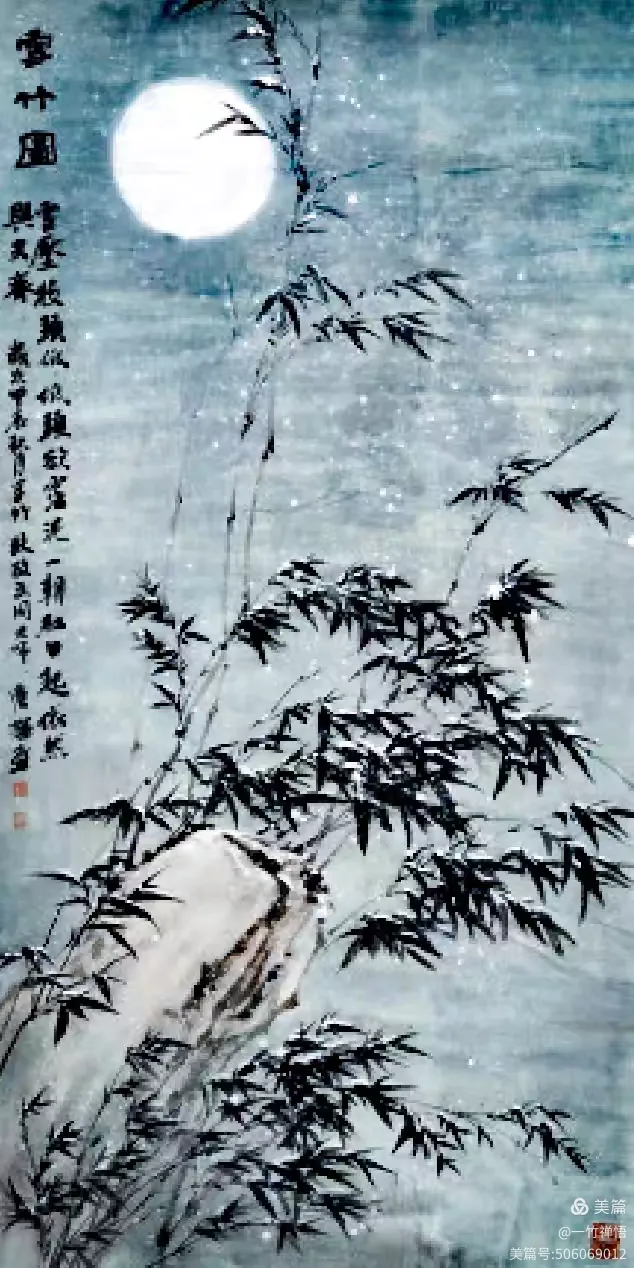 雪竹圖
雪壓枝頭低低頭欲霑泥一朝紅日起依然
與天齊 歲次甲辰秋月
美篇
@一竹禅悟
美篇号:506069012